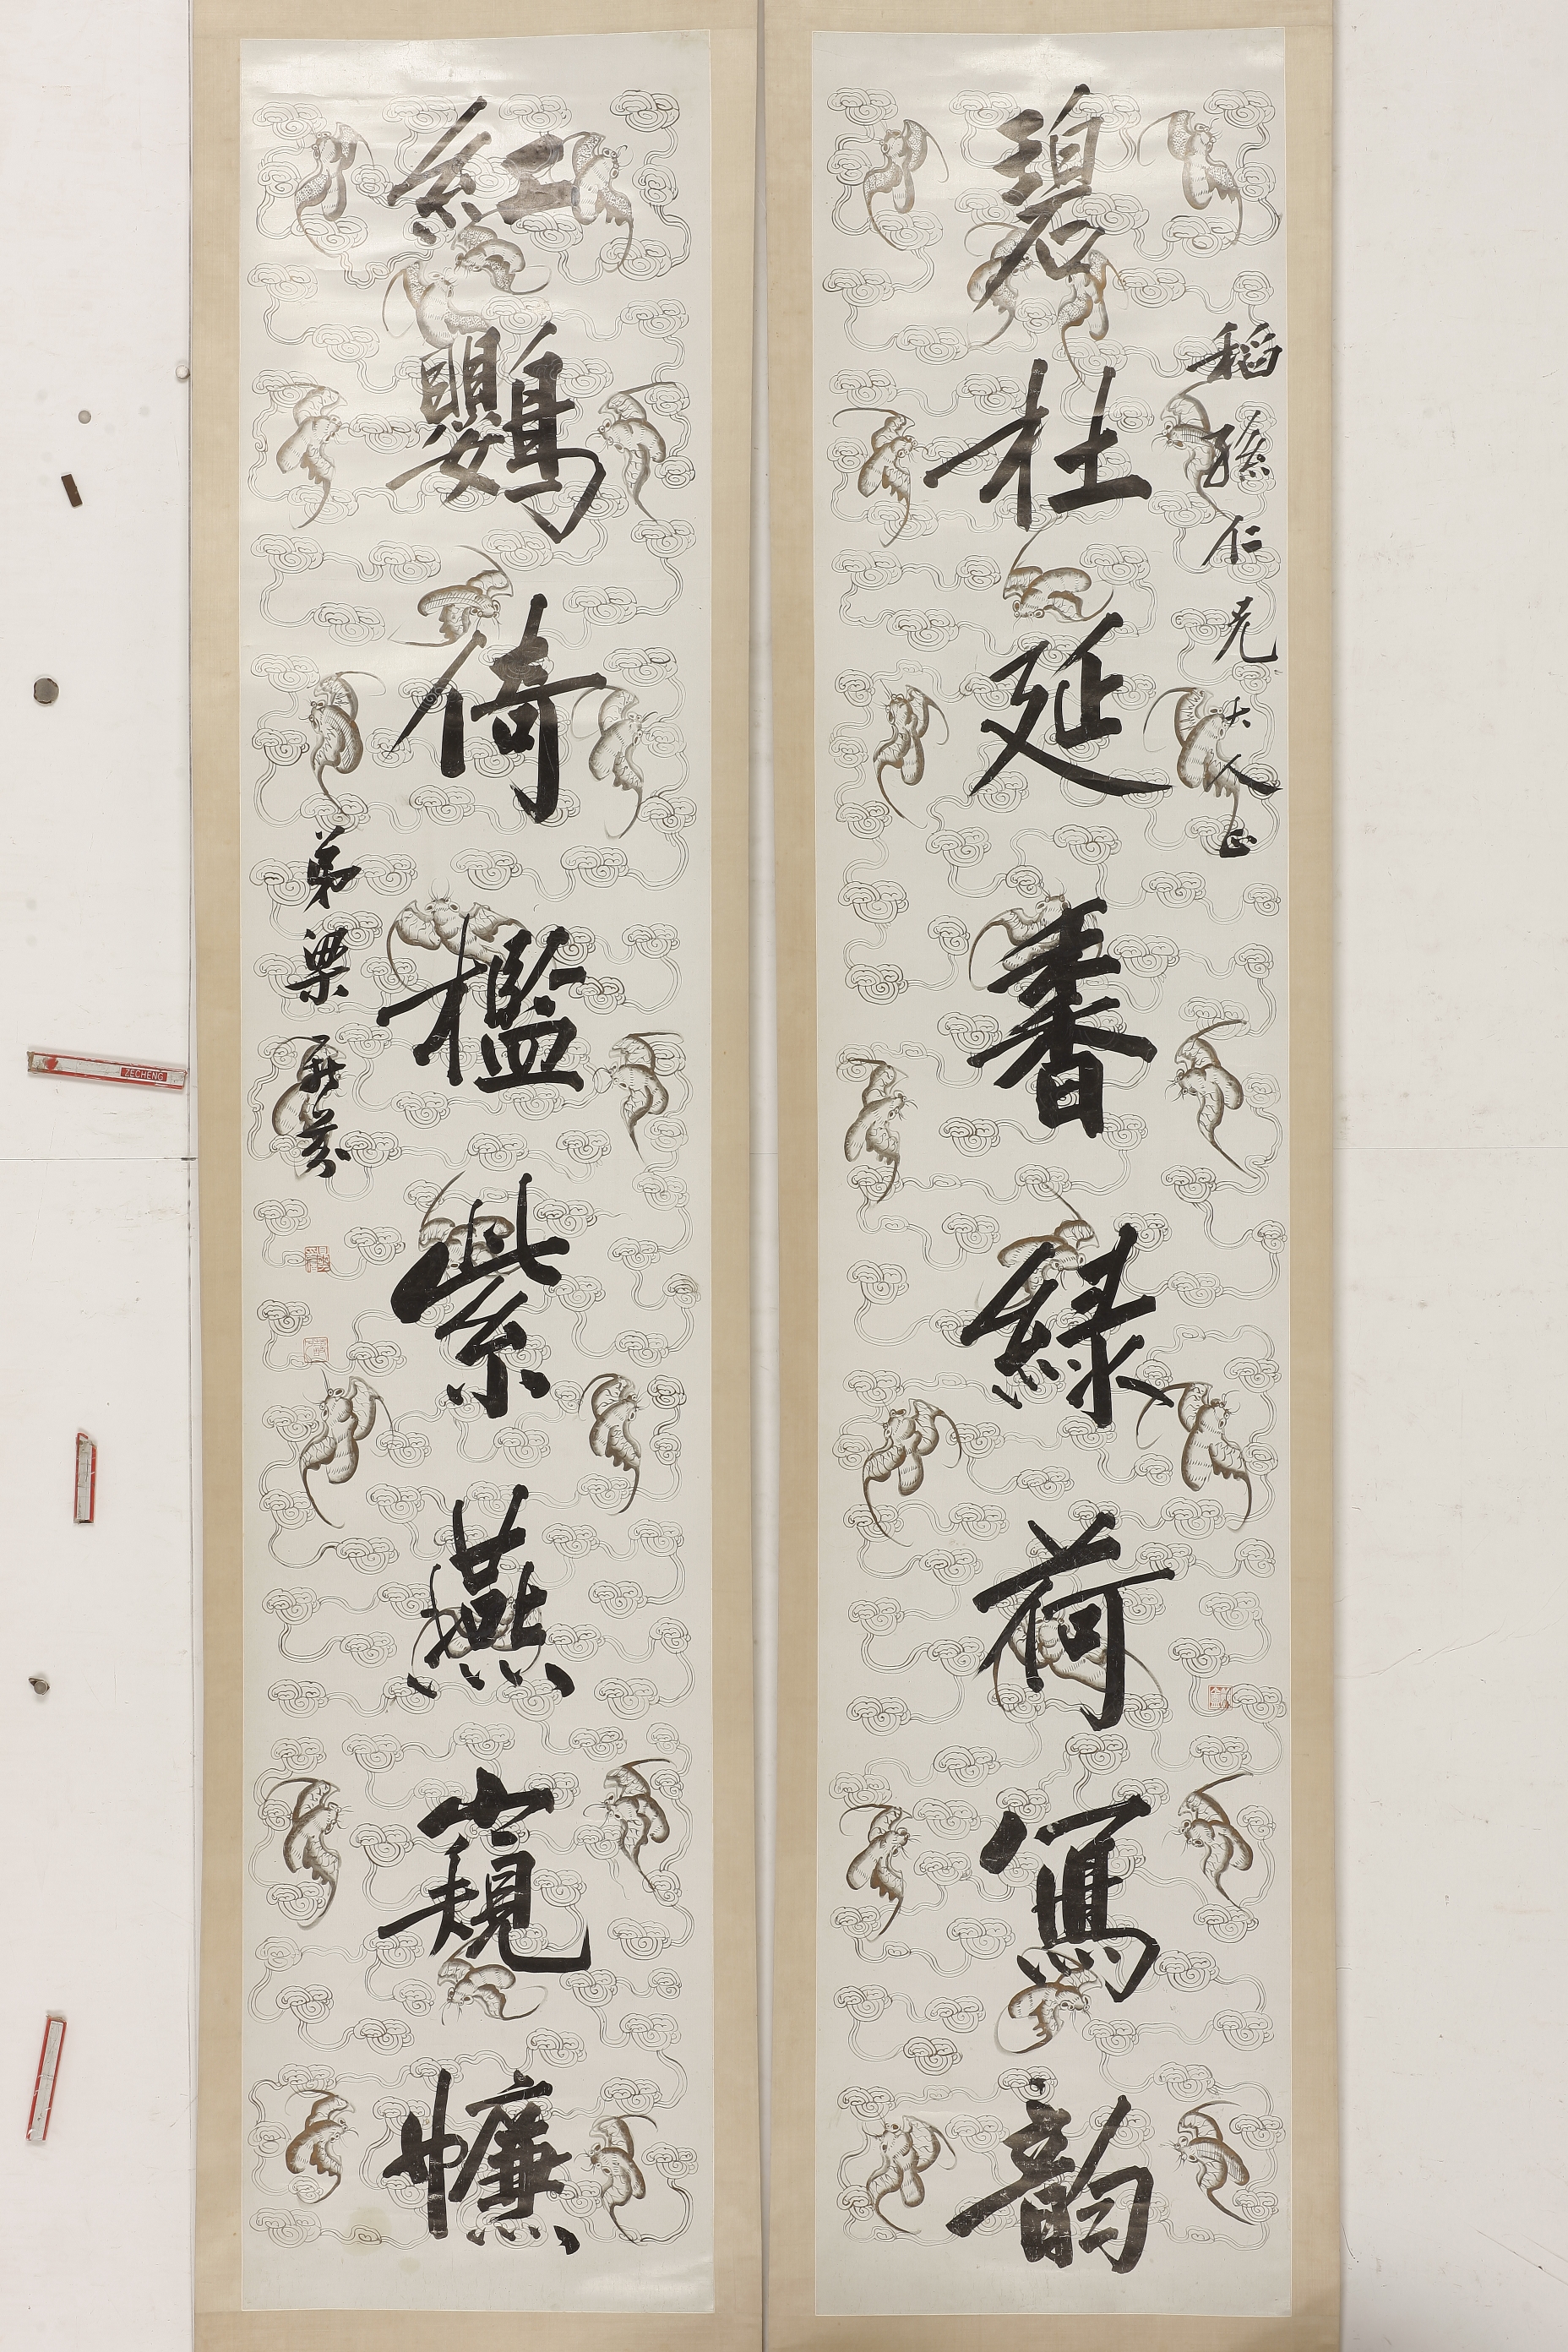 稻孫仁兄大人正
碧杜延香綠荷寫韻
紅鸚倚檻紫燕窺㡘
弟梁
ZECHENG